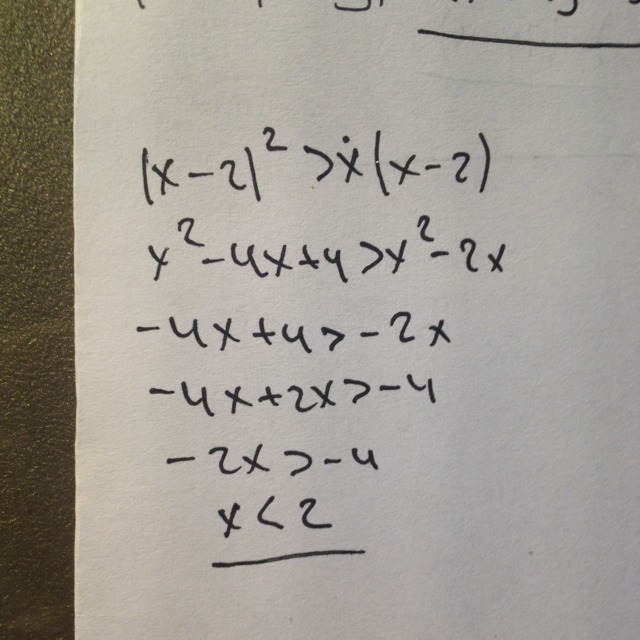 (x-2)² > x(x-2)
x²-4x+4 > x²-2x
-4x+4 > -2x
-4x+2x > -4
-2x > -4
x < 2